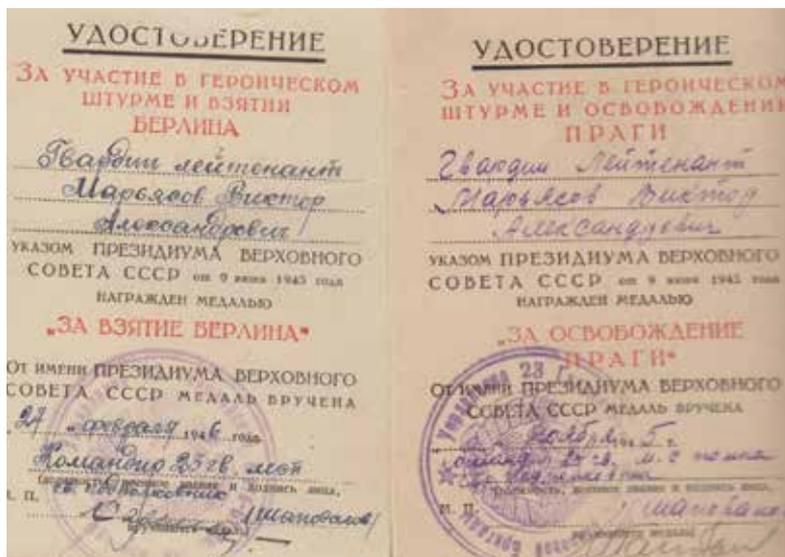 УДОСТОВЕРЕНИЕ
ЗА УЧАСТИЕ В ГЕРОИЧЕСКОМ
ШТУРМЕ И ВЗЯТИИ
БЕРЛИНА
Гвардии лейтенант
Марьясов Виктор
Александрович
УКАЗОМ ПРЕЗИДИУМА ВЕРХОВНОГО
СОВЕТА СССР от 9 июня 1945 года
НАГРАЖДЕН МЕДАЛЬЮ
„ЗА ВЗЯТИЕ БЕРЛИНА"
ОТ ИМЕНИ ПРЕЗИДИУМА ВЕРХОВНОГО
СОВЕТА СССР МЕДАЛЬ ВРУЧЕНА
27 февраля 1946 года
23 гв.
и подпись лица,
М. П.
(Шаповалов)
УДОСТОВЕРЕНИЕ
ЗА УЧАСТИЕ В ГЕРОИЧЕСКОМ
ШТУРМЕ И ОСВОБОЖДЕНИИ
ПРАГИ
Гвардии Лейтенант
Марьясов Виктор
Александрович
УКАЗОМ ПРЕЗИДИУМА ВЕРХОВНОГО
СОВЕТА СССР от 9 июня 1945 года
НАГРАЖДЕН МЕДАЛЬЮ
„ЗА ОСВОБОЖДЕНИЕ
ПРАГИ"
ОТ ИМЕНИ ПРЕЗИДИУМА ВЕРХОВНОГО
СОВЕТА СССР МЕДАЛЬ ВРУЧЕНА
Ноября 1945 г.
гв.
звание и подпись лица,
М. П.
Управление 23